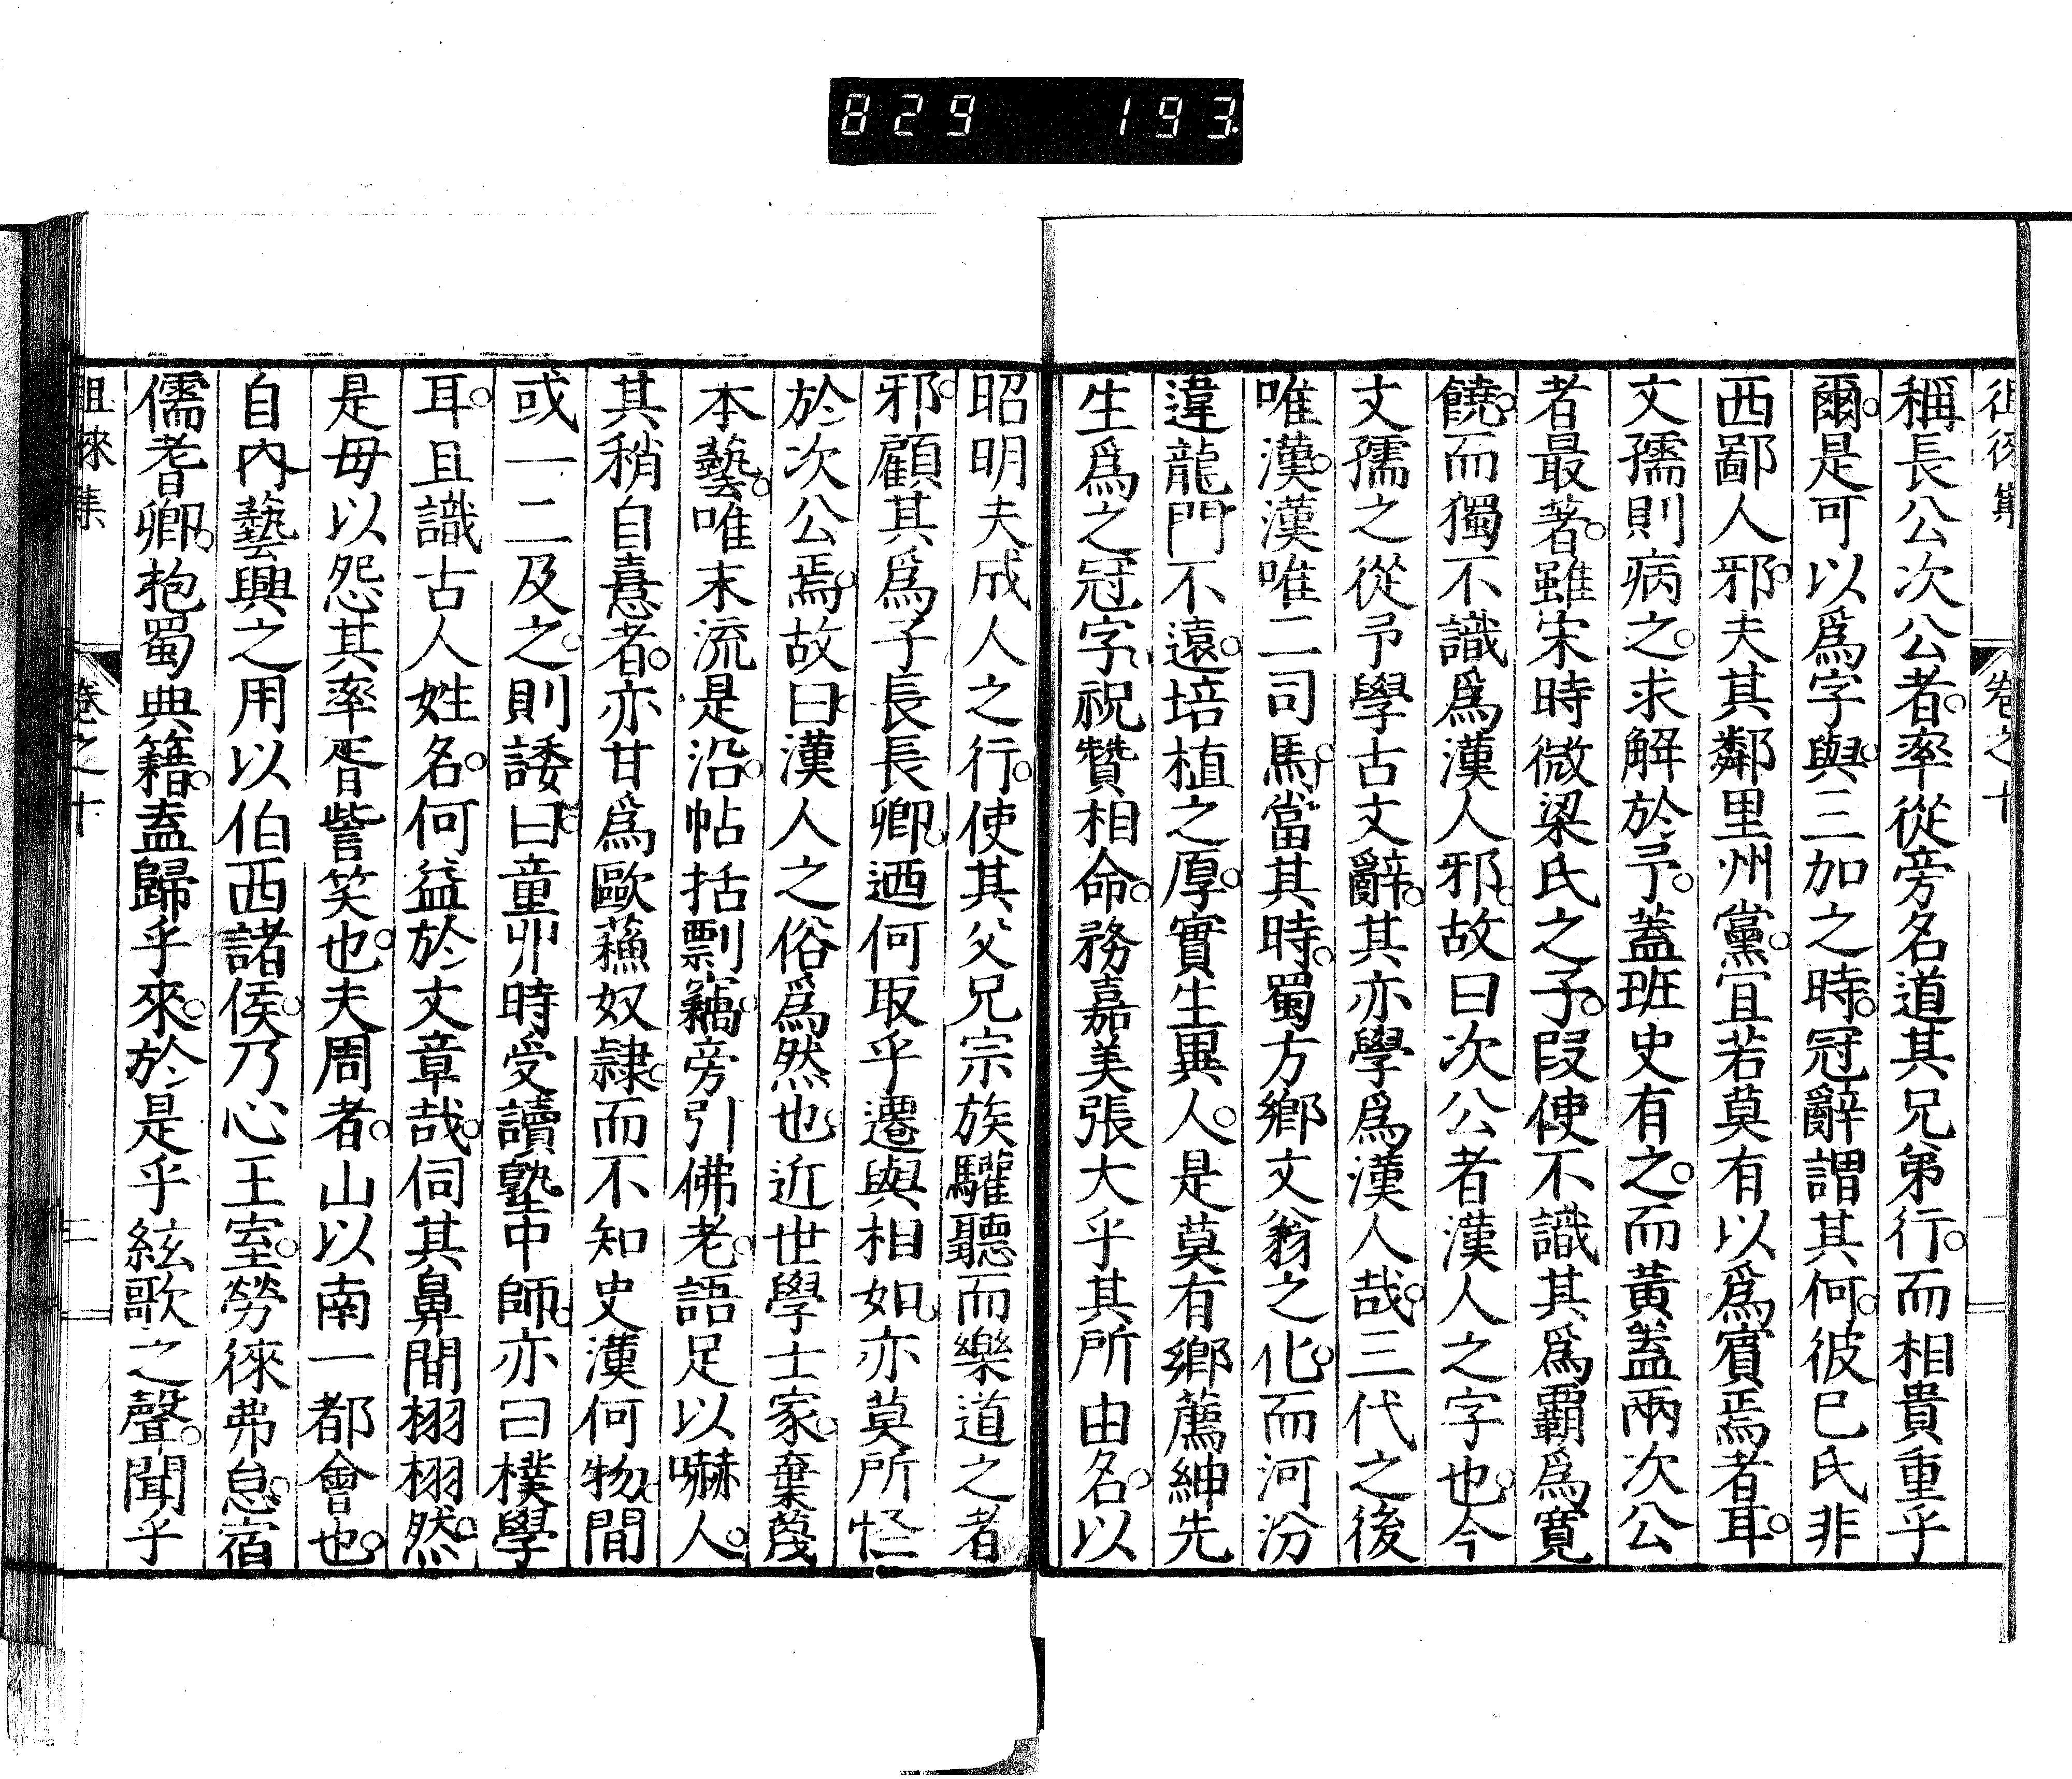 829 193
徂徠集 卷之十
稱長公次公者率從旁名道其兄弟行而相貴重乎
爾是可以爲字與三加之時冠辭謂其何彼巴氏非
西鄙人邪夫其鄰里州黨宜若莫有以爲賓焉者耳
文孺則病之求解於予蓋班史有之而黃蓋兩次公
者最著雖宋時微梁氏之子叚使不識其爲霸爲寬
饒而獨不識爲漢人邪故曰次公者漢人之字也今
文孺之從予學古文辭其亦學爲漢人哉三代之後
唯漢漢唯二司馬當其時蜀方鄉文翁之化而河汾
違龍門不遠培植之厚實生異人是莫有鄉薦紳先
生爲之冠字祝贊相命務嘉美張大乎其所由名以
昭明夫成人之行使其父兄宗族驩聽而樂道之者
邪顧其爲子長長卿迺何取乎遷與相如亦莫所恠
於次公焉故曰漢人之俗爲然也近世學士家棄蔑
本藝唯末流是沿帖括剽竊旁引佛老語足以嚇人
其稍自憙者亦甘爲歐蘓奴隷而不知史漢何物間
或一二及之則諉曰童丱時受讀塾中師亦曰樸學
耳且識古人姓名何益於文章哉伺其鼻間栩栩然
是毋以怨其率胥訾笑也夫周者山以南一都會也
自內藝興之用以伯西諸侯乃心王室勞徠弗怠宿
儒耆卿抱蜀典籍盍歸乎來於是乎絃歌之聲聞乎
徂徠集 卷之十 二